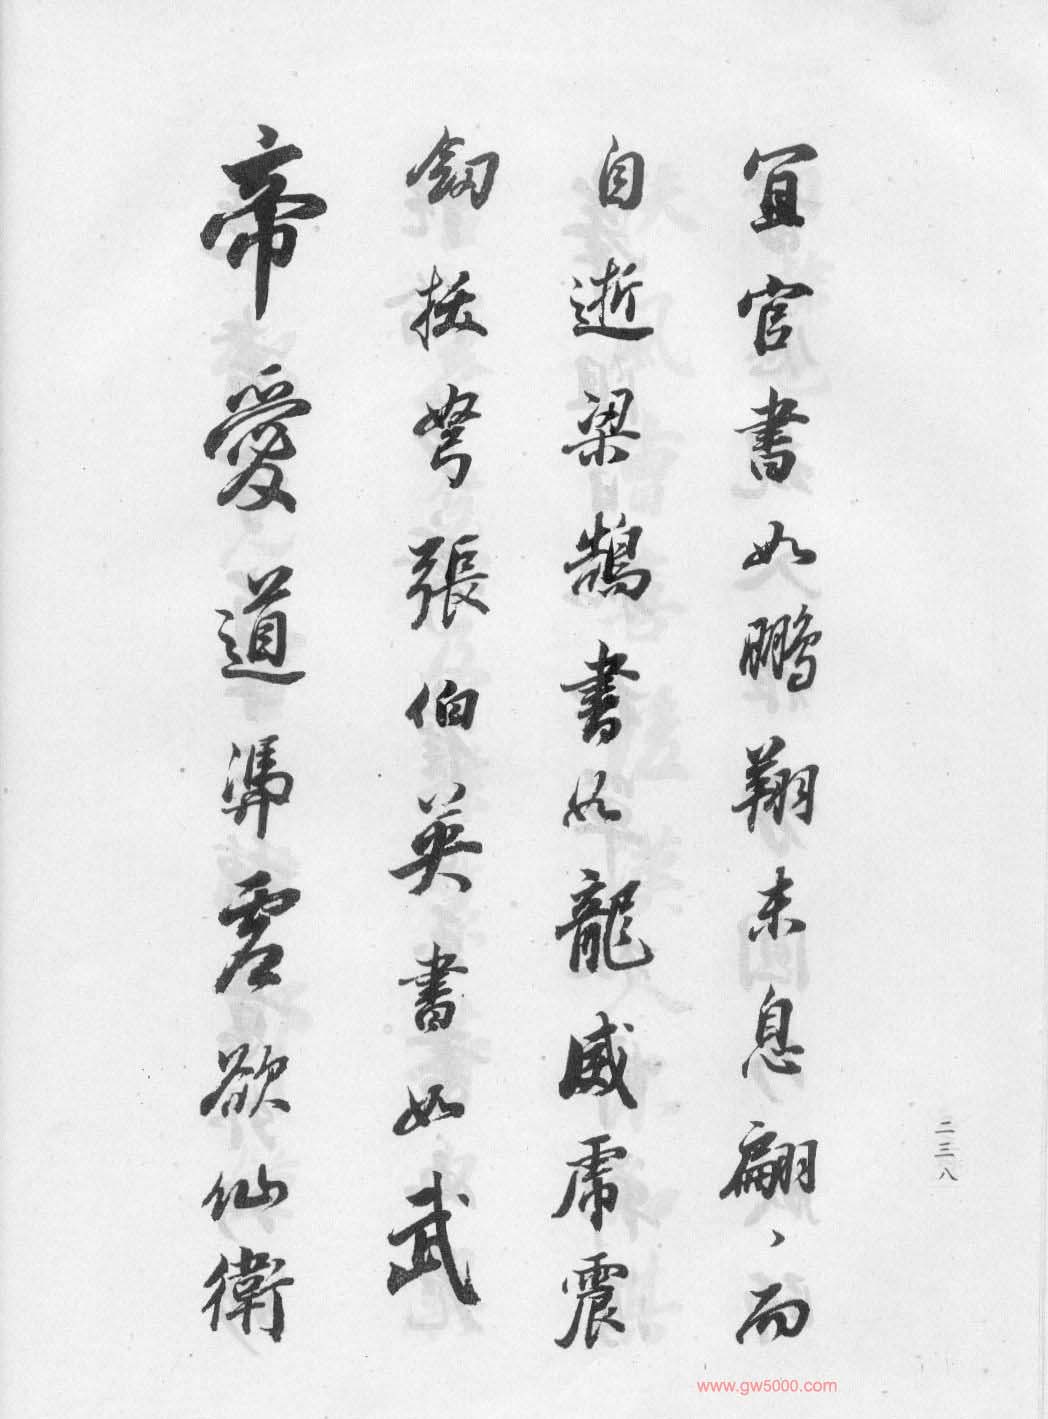 宜官書如鵬翔未息翩、而
自逝梁鵠書如龍威虎震
劒拔弩張伯英書如武
帝愛道馮虛欲仙衛
二三八
www.gw5000.com